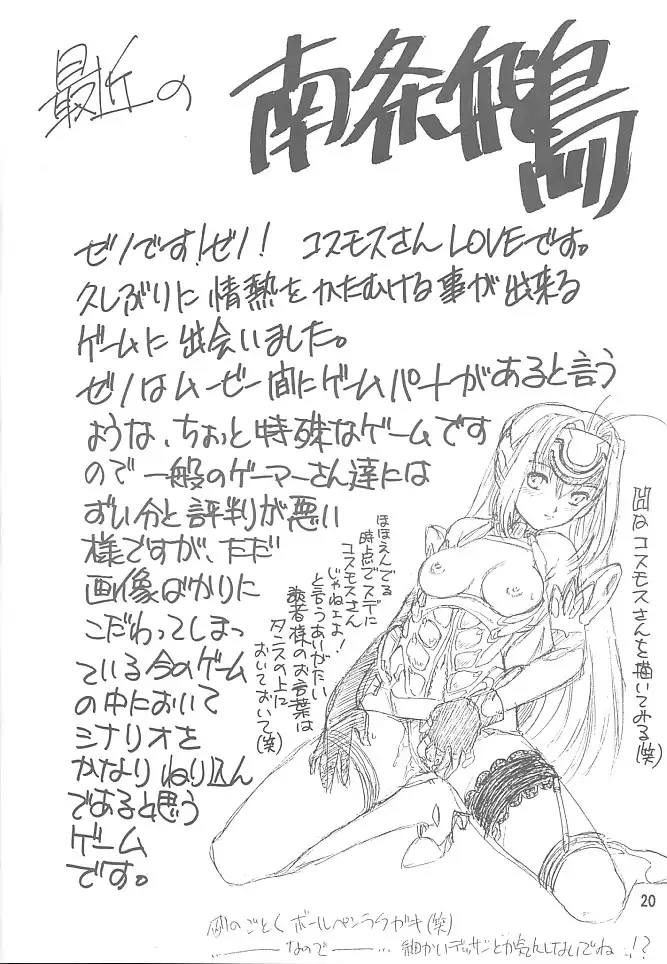 最近の
南条飛鳥
ゼノです!ゼノ! コスモスさんLOVEです。
久しぶりに情熱をかたむける事が出来る
ゲームに出会いました。
ゼノはムービー間にゲームパートがあると言う
ような、ちょっと特殊なゲームです
ので一般のゲーマーさん達には
ずい分と評判が悪い
様ですが、ただ
画像ばかりに
こだわってしまっ
ている今のゲーム
の中において
シナリオを
かなりねり込ん
であると思う
ゲーム
です。
ほほえんでる
時点でスデに
コスモスさん
じゃねェよ!
と言うありがたい
読者様のお言葉は
タンスの上に
おいておいて(笑)
なコスモスさんを描いてみる(笑)
例のごとくボールペンラクガキ(笑)
なので 細かいデッサンとか気にしないでね!?
20